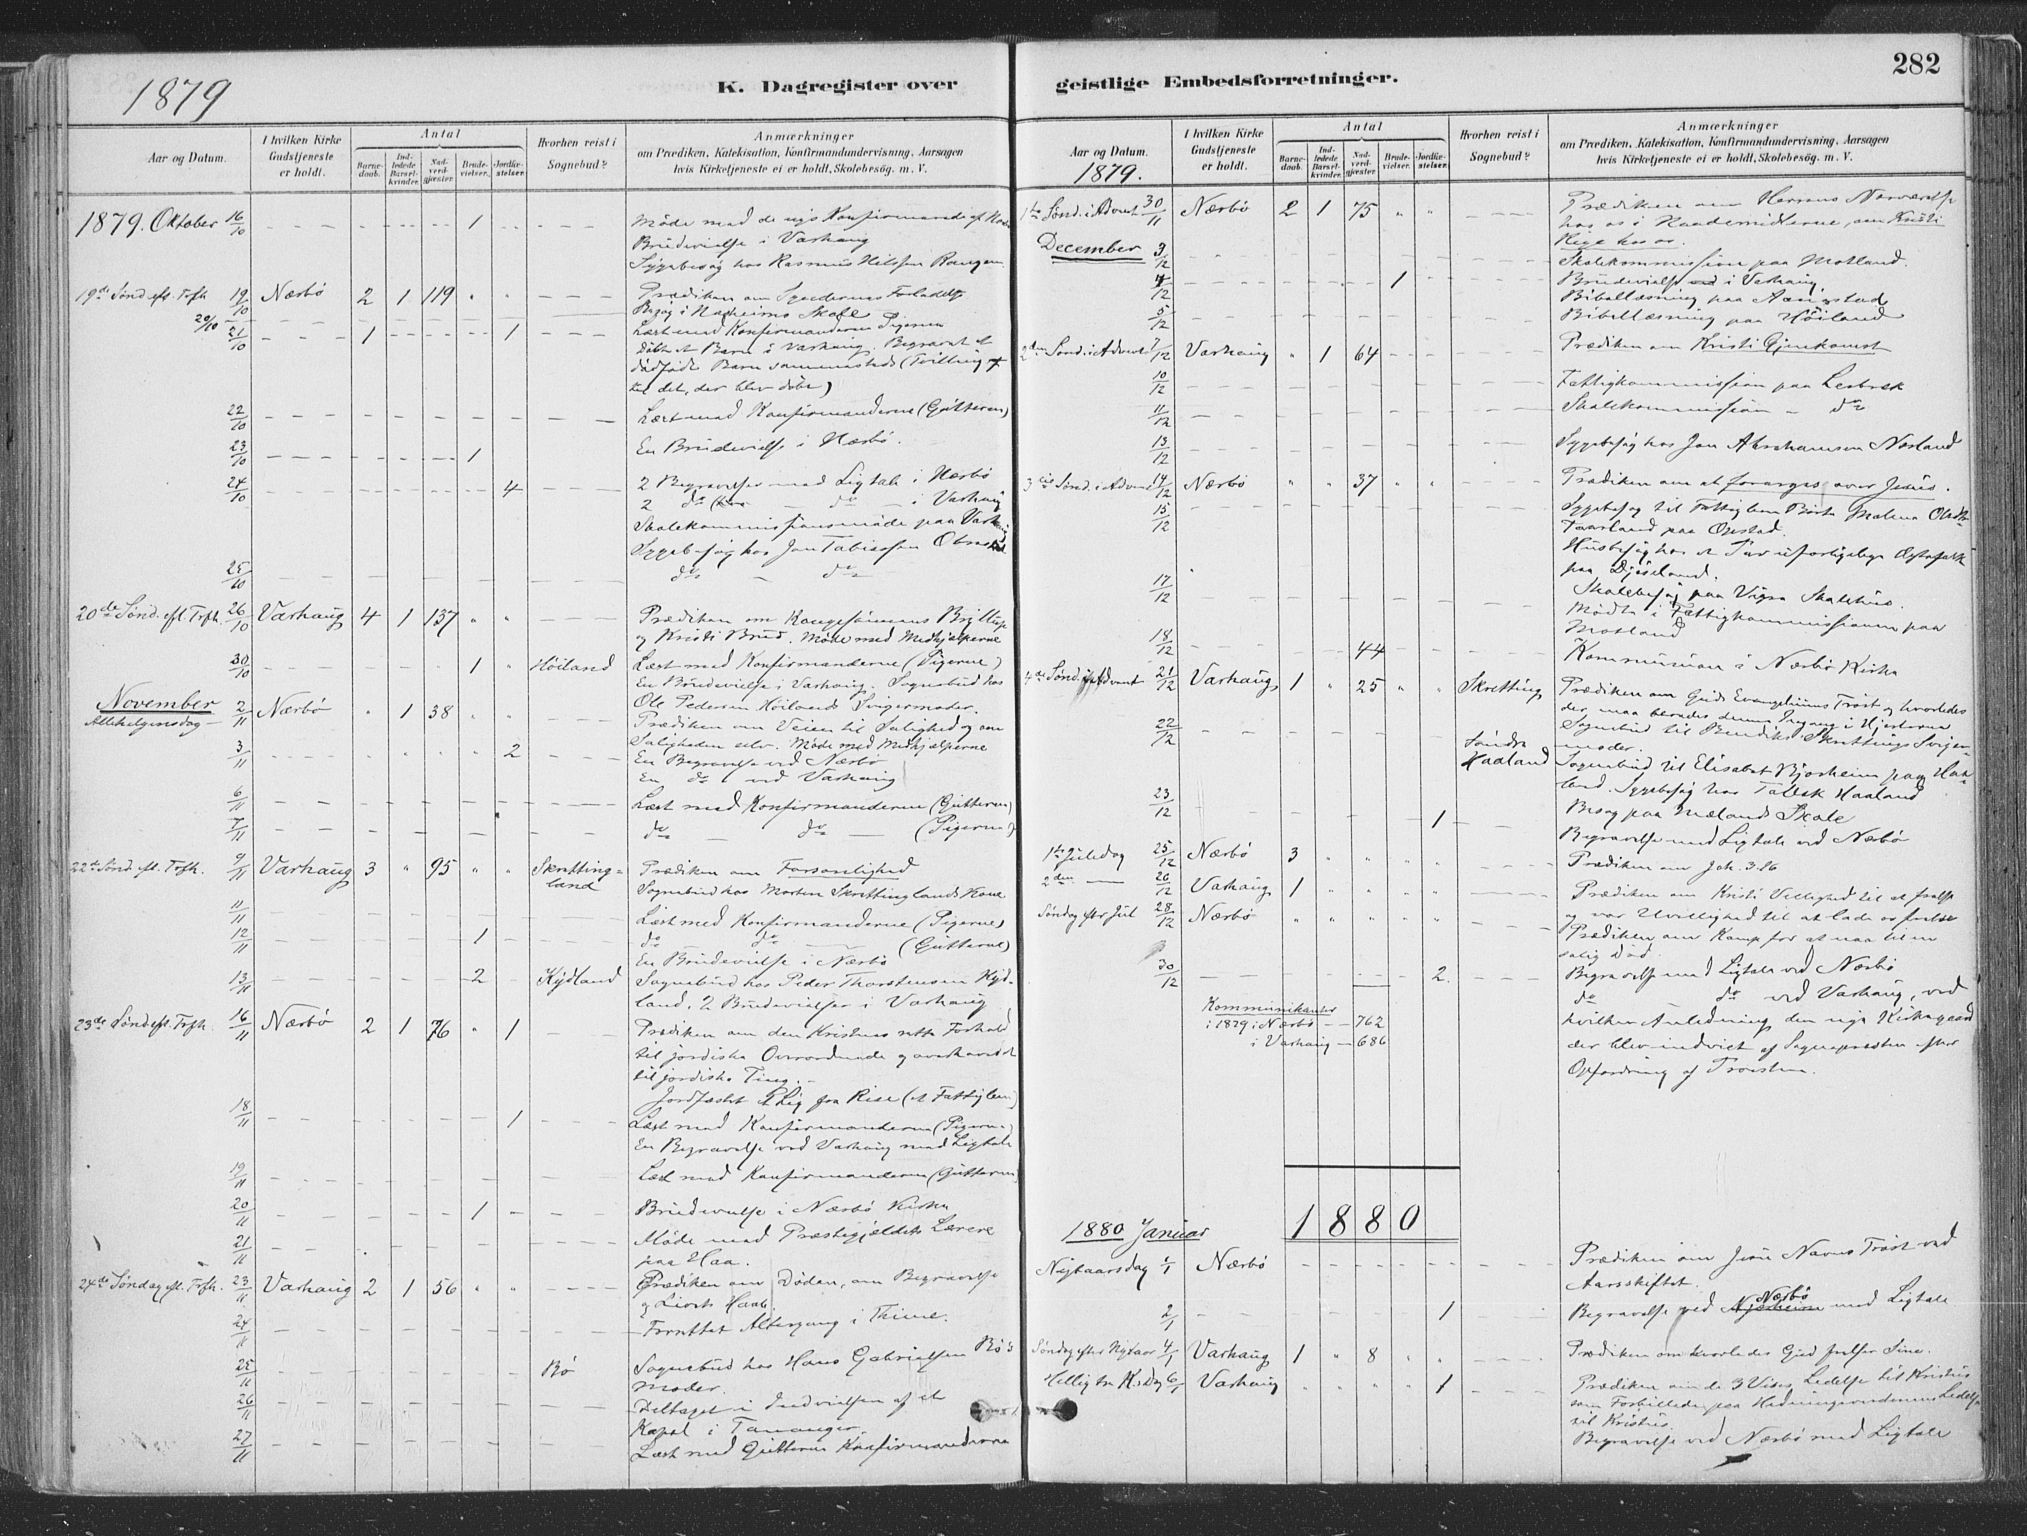 1879
K. Dagregister over
Aar og Datum.
I hvilken Kirke Gudstjeneste er holdt.
Antal
Barnedaab.
Indledede Barselkvinder.
Nadverdgjæster.
Brudevielser.
Jordfæstelser.
Hvorhen reist i Sognebud?
Anmærkninger
om Prædiken, Katekisation, Konfirmandundervisning, Aarsagen
hvis Kirketjeneste ei er holdt, Skolebesög. m. V.
1879. Oktober 16/10 1 Møde med de nye Konfirmander af
Brudevielse i Varhaug
Sygebesøg hos Rasmus Nilssen
19de Sønd. eft. Trfh. 19/10 Nærbø 2 1 119 " " Prædiken om Syndernes Forladelse
20/10 Besøg i Skole.
21/10 1 1 Læst med Konfirmanderne Pigerne
Døbt et Barn i Varhaug. Begravet et
dødfødt Barn sammesteds (Tvilling
til det, der blev døbt)
22/10 Læst med Konfirmanderne (Gutterne)
23/10 1 En Brudevielse i Nærbø.
24/10 4 2 Begravelser med Ligtale i Nærbø
2 do do i Varhaug
Skolekommissionsmøde paa Varhaug
Sygebesøg hos Jon Tobiassen
25/10 do do
20de Sønd. eft. Trfh. 26/10 Varhaug 4 1 137 " " Prædiken om Kongesønnens Bryllup
og Kristi Brud. Møde med Medhjælperne
30/10 1 " Høiland Læst med Konfirmanderne (Pigerne)
En Brudevielse i Varhaug. Sognebud hos
Ole Pedersen Høilands Svigermoder.
November
Allehelgensdag 2/11 Nærbø " 1 38 " " Prædiken om Veien til Salighed og om
Saligheden selv. Møde med Medhjælperne
3/11 " " " 2 En Begravelse ved Nærbø
En do ved Varhaug
6/11 Læst med Konfirmanderne (Gutterne)
7/11 do do (Pigerne)
22de Sønd. eft. Trfh. 9/11 Varhaug 3 " 95 " " Skrettingland Prædiken om Forsonlighed
Sognebud hos Morten Skrettinglands Kone
11/11 Læst med Konfirmanderne (Pigerne)
12/11 1 do do (Gutterne)
En Brudevielse i Nærbø
13/11 2 Kydland Sognebud hos Peder Thorstensen Kydland.
2 Brudevielser i Varhaug
23de Sønd. eft. Trfh. 16/11 Nærbø 2 1 76 " 1 Prædiken om den Kristnes rette Forhold
til jordiske Overordnede og overhovedet
til jordiske Ting.
Jordfæstet et Lig fra Rise (et Fattiglem)
18/11 1 Læst med Konfirmanderne (Pigerne)
En Begravelse ved Varhaug med Ligtale
19/11 Læst med Konfirmanderne (Gutterne)
20/11 1 Brudevielse i Nærbø Kirke
21/11 Møde med Præstegjældets Lærere
paa Haa.
24de Søndag eft. Trfh. 23/11 Varhaug 2 1 56 " " Prædiken om Døden, om Begravelse
og Livets Haab.
24/11 Forrettet Altergang i Thime.
25/11 Bø Sognebud hos Hans Gabrielsen Bø's
Moder.
26/11 Deltaget i Indvielsen af et
Kapel i Tananger.
27/11 Læst med Gutterne Konfirmanderne
282
geistlige Embedsforretninger.
Aar og Datum.
1879.
I hvilken Kirke Gudstjeneste er holdt.
Antal
Barnedaab.
Indledede Barselkvinder.
Nadverdgjæster.
Brudevielser.
Jordfæstelser.
Hvorhen reist i Sognebud?
Anmærkninger
om Prædiken, Katekisation, Konfirmandundervisning, Aarsagen
hvis Kirketjeneste ei er holdt, Skolebesög. m. V.
1ste Sønd. i Advent 30/11 Nærbø 2 1 75 " " Prædiken om Herrens Nærværelse
hos os i Naademidlerne, om Kristi
Rige hos os.
December 3/12 Skolekommission paa Motland.
4/12 1 Brudevielse i Varhaug.
Bibellæsning paa
5/12 Bibellæsning paa Høiland
2den Sønd. i Advent 7/12 Varhaug " 1 64 Prædiken om Kristi Gjenkomst
10/12 Fattigkommission paa
11/12 Skolekommission do
13/12 Sygebesøg hos Jon Abrahamsen Norland
3die Sønd. i Advent 14/12 Nærbø " " 37 " " Prædiken om at forarges over Jesus.
15/12 Sygebesøg til Fattiglem Malena
paa Opstad.
Husbesøg hos et Par uforligelige Ægtefolk
paa
17/12 Skolebesøg paa Vigre Skolehus.
Mødte i Fattigkommissionen paa
Motland
18/12 44 Kommunion i Nærbø Kirke
4de Sønd. i Advent 21/12 Varhaug 1 " 25 " " Skretting Prædiken om Guds Evangeliums Trøst og hvorledes
der maa beredes denne Indgang i Hjerterne
22/12 Søndre Haaland Sognebud til Skrettings Svigermoder.
Sognebud til Elisabet Bjorheim paa Haaland.
Sygebesøg hos Haaland
23/12 1 Besøg paa Mælands Skole
Begravelse med Ligtale ved Nærbø
1ste Juledag 25/12 Nærbø 3 " " " " Prædiken om Joh. 3.16
2den 26/12 Varhaug 1 " " " " Prædiken om Kristi Villighed til at frelse
og vor Uvillighed til at lade os frelse
Søndag efter Jul 28/12 Nærbø " " " " " Prædiken om Kamp for at naa til en
salig Død.
30/12 2. Begravelse med Ligtale ved Nærbø
do do ved Varhaug, ved
hvilken Anledning den nye Kirkegaard
der blev indviet af Sognepræsten efter
Opfordring af Provsten.
Kommunikanter
i 1879 i Nærbø 762
i Varhaug 686
1880
1880 Januar
Nytaarsdag 1/1 Nærbø Prædiken om Jesu Navns Trøst ved
Aarsskiftet.
2/1 1 Begravelse ved Nærbø med Ligtale
Søndag efter Nytaar 4/1 Varhaug 1 " 8 " " Prædiken om hvorledes Gud frelser Sine.
Hellig tre K. Dag 6/1 Varhaug " " " " 1 Prædiken om de 3 Vises Ledelse til Kristus
som Forbillede paa Hedningeverdenens Ledelse
til Kristus.
Begravelse ved Nærbø med Ligtale